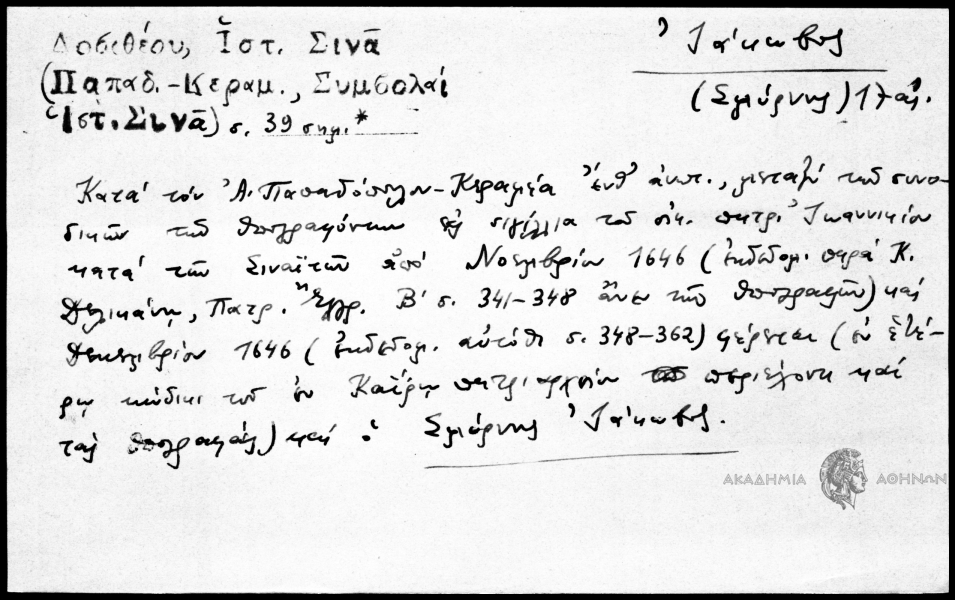 Δοσιθέου, Ἱστ. Σινᾶ
(Παπαδ.-Κεραμ., Συμβολαί
Ἱστ. Σινᾶ) σ. 39 σημ.*
Ἰάκωβος
(Σμύρνης) 17 αἰ.
Κατά τόν Ἀ. Παπαδόπουλον-Κεραμέα ἔνθ' ἀνωτ., μεταξύ τῶν συνο-
δικῶν τῶν ὑπογραψάντων σιγίλλια τοῦ οἰκ. πατρ. Ἰωαννικίου
κατά τῶν Σιναϊτῶν ἀπό Νοεμβρίου 1646 (ἐκδεδομ. παρά Κ.
Δελικάνῃ, Πατρ. Ἔγγρ. Β' σ. 341-348 ἄνευ τῶν ὑπογραφῶν) καί
Δεκεμβρίου 1646 (ἐκδεδομ. αὐτόθι σ. 348-362) φέρεται (ἐν ἑτέ-
ρῳ κώδικι τοῦ ἐν Καΐρῳ πατριαρχείου περιέχοντι καί
τάς ὑπογραφάς) καί ὁ Σμύρνης Ἰάκωβος.
ΑΚΑΔΗΜΙΑ ΑΘΗΝΩΝ